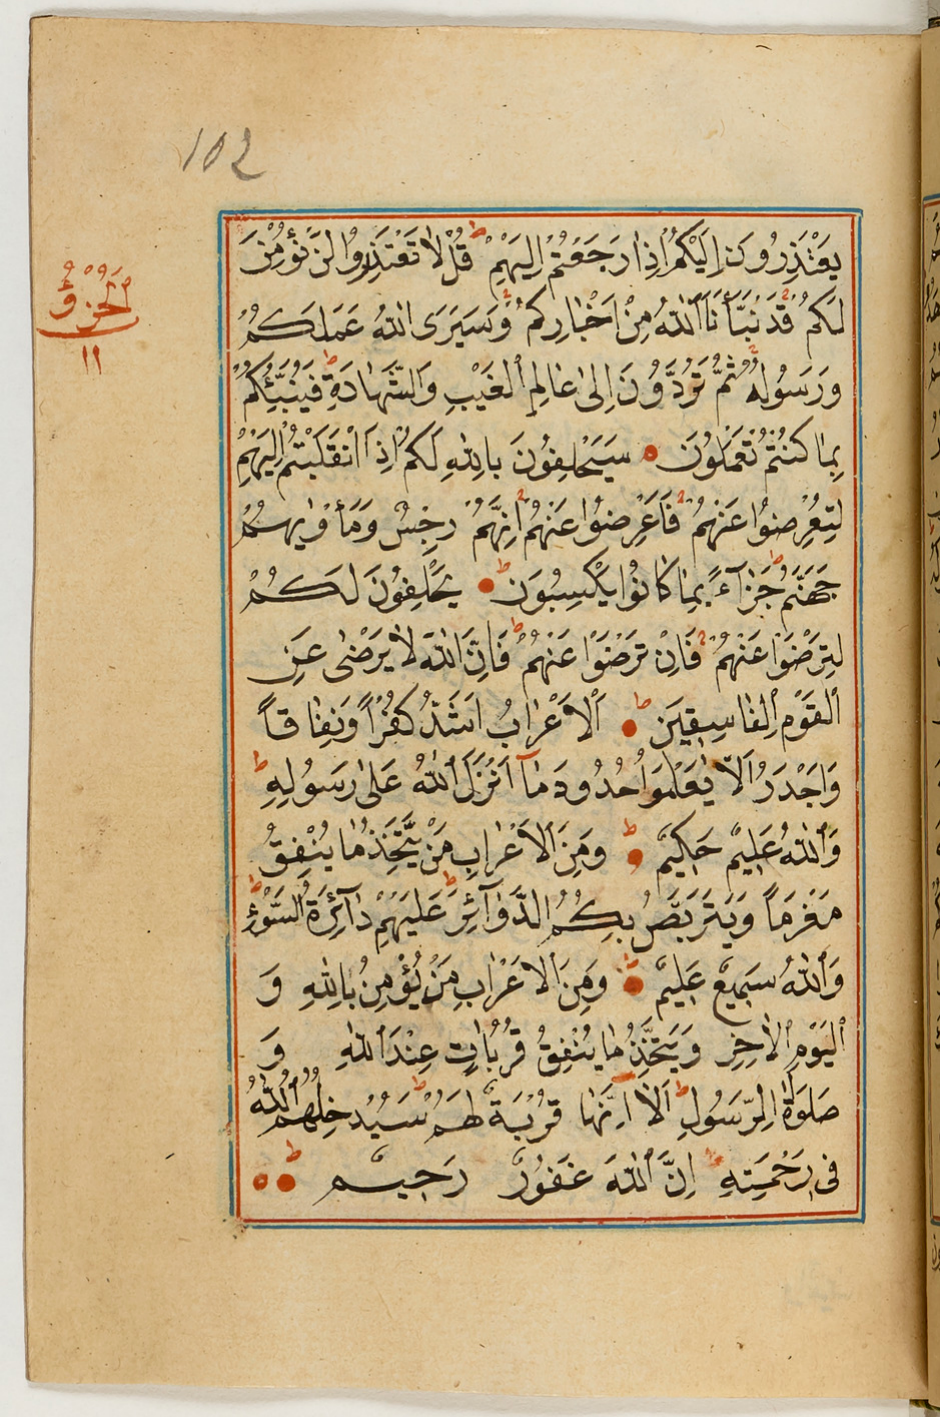 102
يَعْتَذِرُونَ اِلَيْكُمْ اِذَا رَجَعْتُمْ اِلَيْهِمْ ط قُلْ لَا تَعْتَذِرُوا لَنْ نُؤْمِنَ
لَكُمْ قَدْ نَبَّأَنَا اللّٰهُ مِنْ اَخْبَارِكُمْ وَسَيَرَى اللّٰهُ عَمَلَكُمْ
وَرَسُولُهُ ثُمَّ تُرَدُّونَ اِلٰى عَالِمِ الْغَيْبِ وَالشَّهَادَةِ ط فَيُنَبِّئُكُمْ
بِمَا كُنْتُمْ تَعْمَلُونَ سَيَحْلِفُونَ بِاللّٰهِ لَكُمْ اِذَا انْقَلَبْتُمْ اِلَيْهِمْ
لِتُعْرِضُوا عَنْهُمْ فَاَعْرِضُوا عَنْهُمْ اِنَّهُمْ رِجْسٌ وَمَأْوٰيهُمْ
جَهَنَّمُ ط جَزَآءً بِمَا كَانُوا يَكْسِبُونَ ط يَحْلِفُونَ لَكُمْ
لِتَرْضَوْا عَنْهُمْ فَاِنْ تَرْضَوْا عَنْهُمْ ط فَاِنَّ اللّٰهَ لَا يَرْضٰى عَنِ
الْقَوْمِ الْفَاسِقِينَ ط اَلْاَعْرَابُ اَشَدُّ كُفْرًا وَنِفَاقًا
وَاَجْدَرُ اَلَّا يَعْلَمُوا حُدُودَ مَآ اَنْزَلَ اللّٰهُ عَلٰى رَسُولِهِ ط
وَاللّٰهُ عَلِيمٌ حَكِيمٌ ط وَمِنَ الْاَعْرَابِ مَنْ يَتَّخِذُ مَا يُنْفِقُ
مَغْرَمًا وَيَتَرَبَّصُ بِكُمُ الدَّوَآئِرَ ط عَلَيْهِمْ دَآئِرَةُ السَّوْءِ ط
وَاللّٰهُ سَمِيعٌ عَلِيمٌ وَمِنَ الْاَعْرَابِ مَنْ يُؤْمِنُ بِاللّٰهِ وَ
الْيَوْمِ الْاٰخِرِ وَيَتَّخِذُ مَا يُنْفِقُ قُرُبَاتٍ عِنْدَ اللّٰهِ وَ
صَلَوَاتِ الرَّسُولِ ط اَلَآ اِنَّهَا قُرْبَةٌ لَهُمْ ط سَيُدْخِلُهُمُ اللّٰهُ
فِى رَحْمَتِهِ ط اِنَّ اللّٰهَ غَفُورٌ رَحِيمٌ ط
اَلْجُزْؤُ
١١